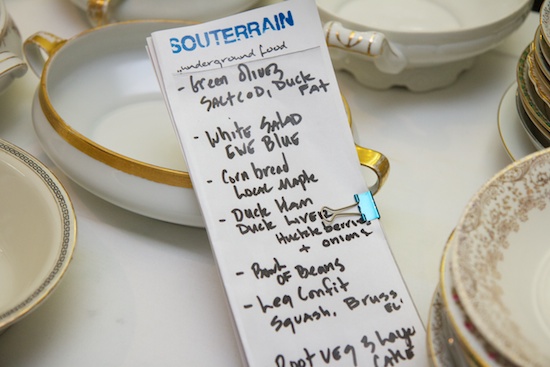 SOUTERRAIN
..underground food
- Green Olives
Saltcod, Duck Fat
- White Salad
Ewe Blue
- Corn bread
Local Maple
- Duck Ham
Duck Liver
Huckleberries
+ onions
- Bowl of Beans
- Leg Confit
Squash, Bruss
Root Veg 3 Layer
Cake